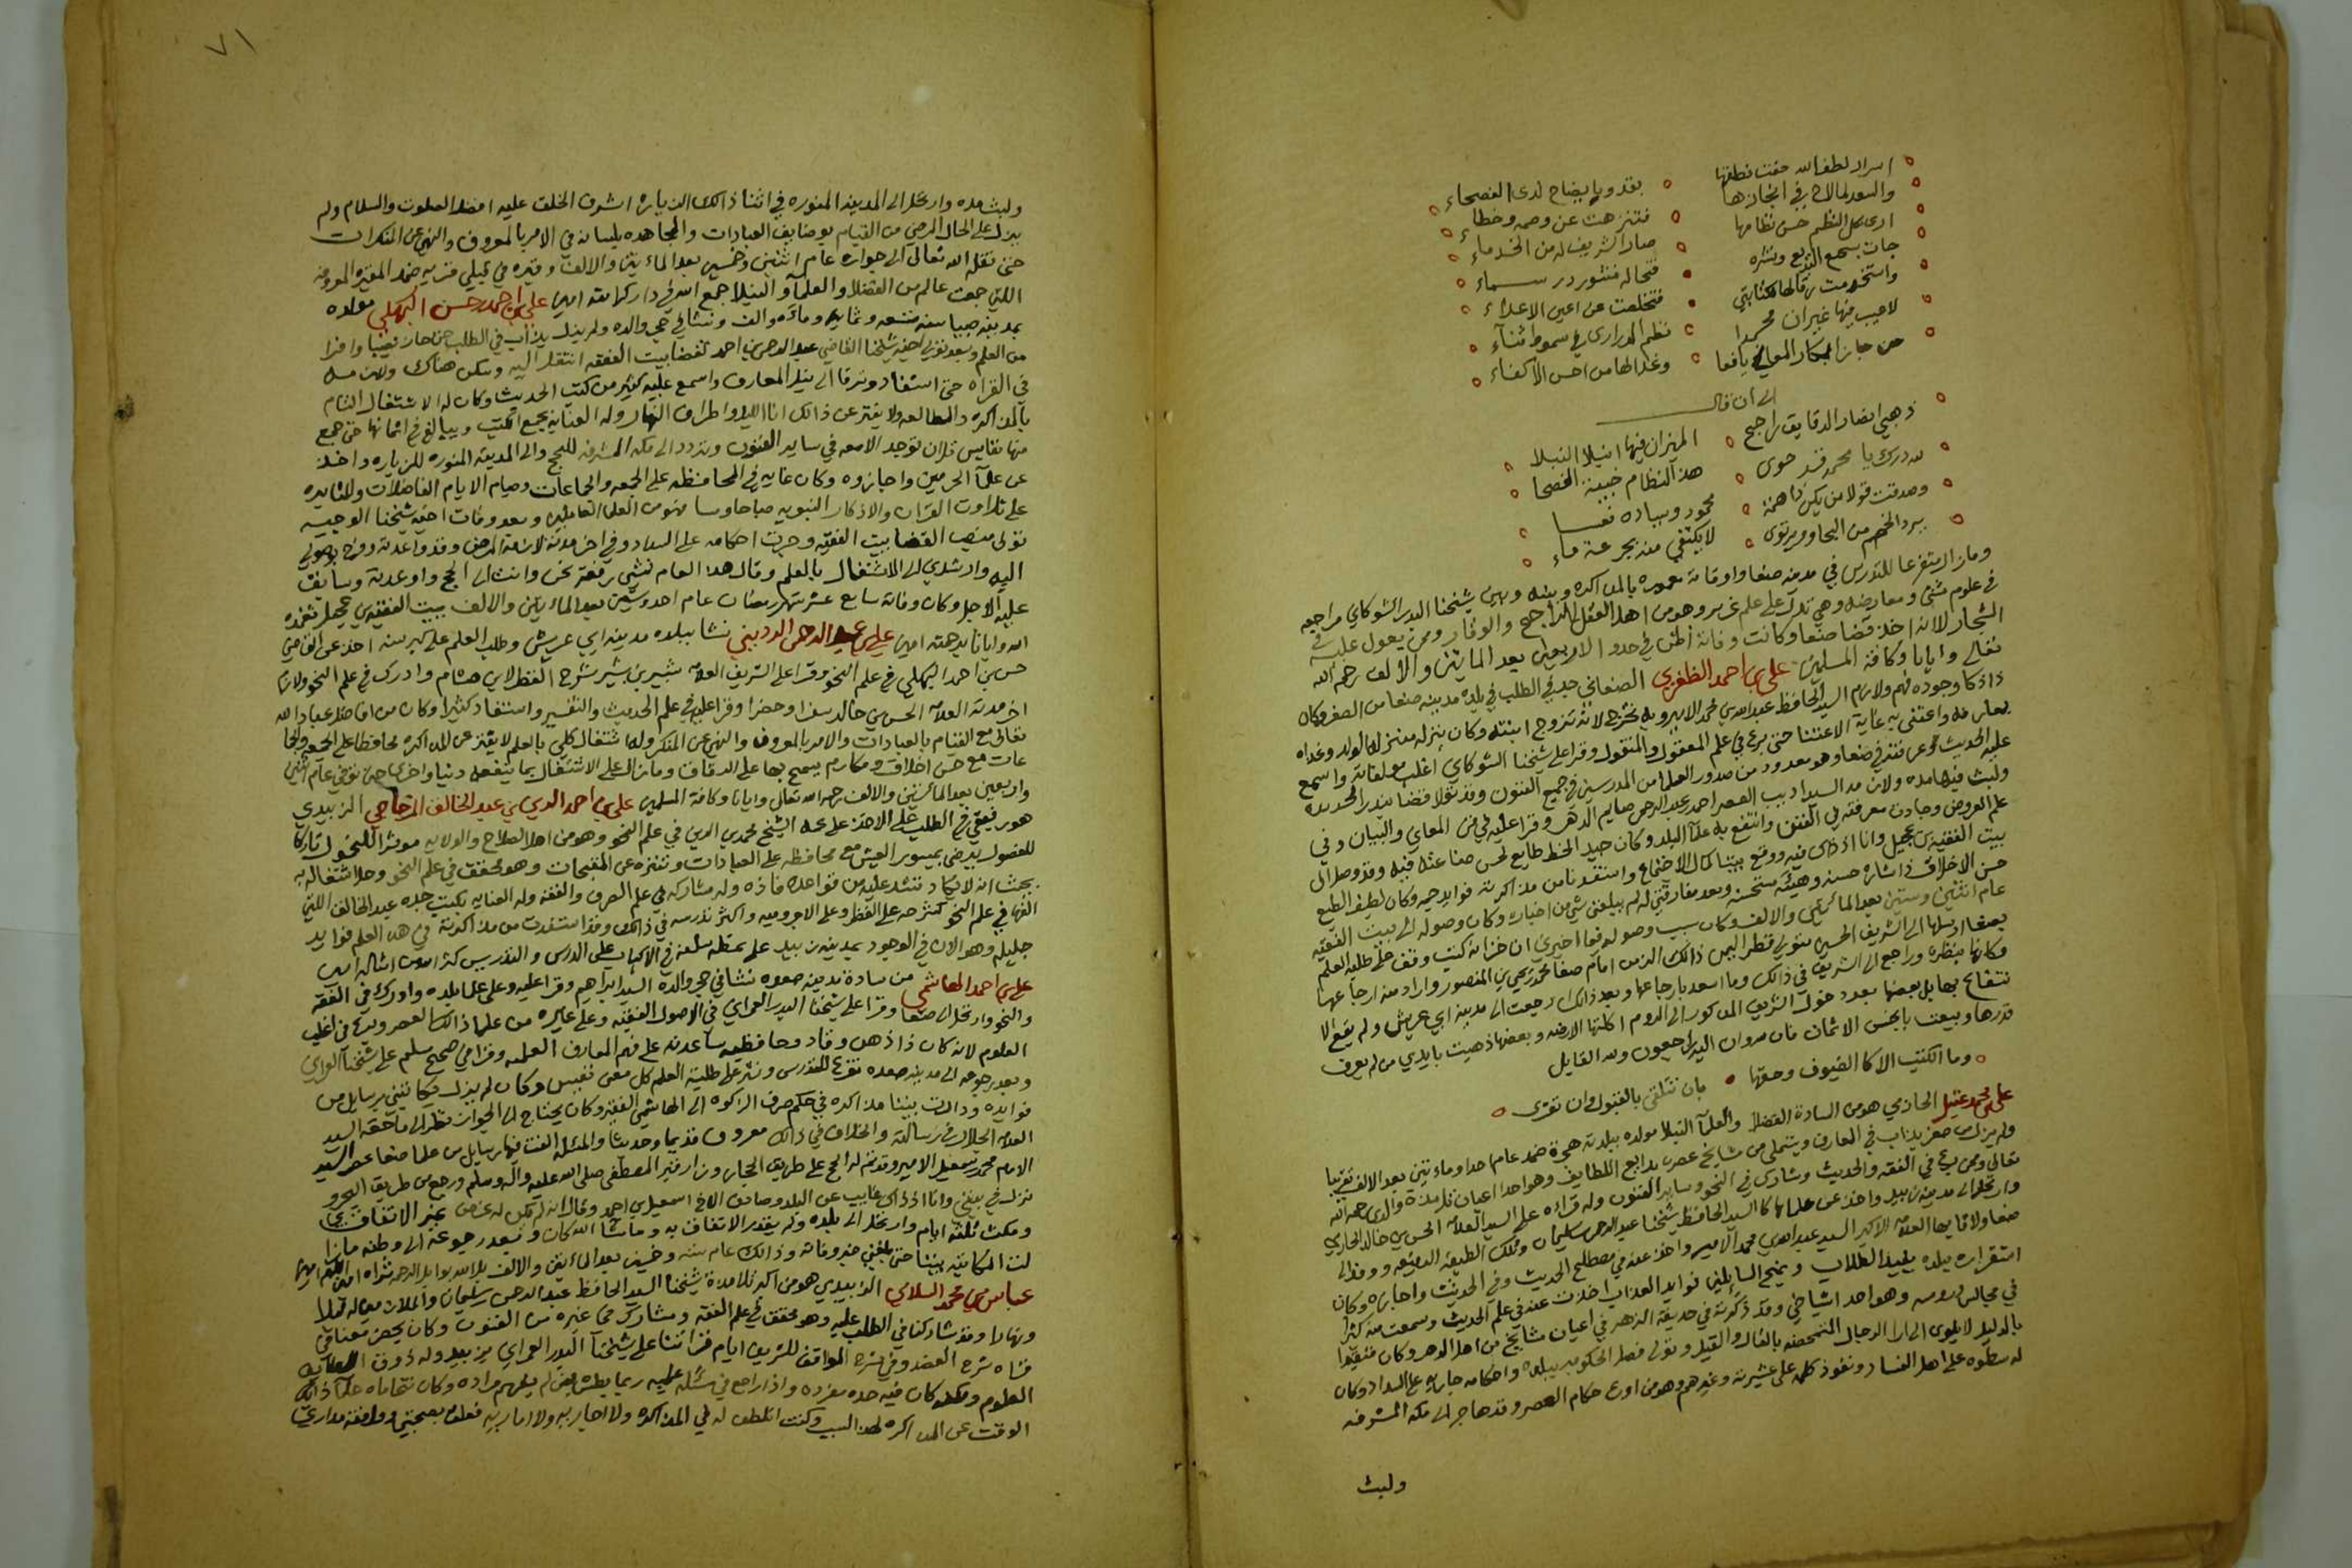 اسرار لطف الله حفت نطقها ٥ بقدو بايضاح لدى الفصحاء
والسعد لما لاح في ايجازها ٥ فتنزهت عن وصمه وخطاء
ارى كل النظم حسن نظامها ٥ صار الشريف له من الخدماء
جات بسجع البديع ونثره • فتحاله منثور در سماء
واستخدمت رقا لها • فتخلصت عن اعين الاعداء
لاعيب فيها غير ان محمدا ٥ نظم الدرارى في سموط ثناء
من حاز ابكار المعالي يافعا ٥ وغدا لها من احسن الاكفاء
الى ان قال
ذهبي انضار الدقايق راجح ٥ الميزان فيها انبلا النبلا
لله درك يا محمد قد حوى ٥ هذا النظام الفصحا
وصدقت قولا من يكن ذا همة ٥ محمود
يرد الخضم من البحار ويرتوى ٥ لا يكتفي منه بجرعة ماء
ومازال متفرغا للتدريس في مدينه صنعا واوقاته معموره بالمذاكره وبينه وبين شيخنا البدر الشوكاني مراجعه
في علوم شتى ومعارضه وهي تدل على علم غزير وهو من اهل العقل الراجح والوقار وممن يعول عليه في
الشجار لانه اخذ قضا صنعا وكانت وفاته اظن في حدود الاربعين بعد المائتين والالف رحمه الله
تعالى وايانا وكافة المسلمين علي بن احمد الظفري الصنعاني جد في الطلب في بلده مدينه صنعا من الصغر وكان
ذا ذكا وجوده فهم ولازم السيد الحافظ عبد الله بن محمد الامير وبه تخرج لانه تزوج ابنته وكان ينزله منزلة الولد وغذاه
بمعارفه واعتنى به غاية الاعتنا حتى برع في علم المعقول والمنقول وقرا على شيخنا الشوكاني اغلب مولفاته واسمع
عليه الحديث وهو معدود من صدور العلما من المدرسين في جميع الفنون وقد تولا قضا بندر الحديده
ولبث فيها مده ولازمه السيد اديب العصر احمد بن عبد الرحمن صايم الدهر وقرا عليه في فن المعاني والبيان وفي
علم العروض وجادت معرفته في الفنين وانتفع به علما البلد وكان جيد الخط طايع لحسن صناعته فيه وقد وصل الى
بيت الفقيه بن عجيل وانا اذ ذاك فيه ووقع بيننا كمال الاجتماع واستفدنا من مذاكرته فوايد جمه وكان لطيف الطبع
حسن الاخلاق ذا شاره حسنه وهيئه مستحسنه وبعد مفارقتي له لم يبلغني شي من اخباره وكان وصوله الى بيت الفقيه
عام اثنتين وستين بعد المائتين والالف وكان سبب وصوله فيما اخبرني ان خزانة كتب وقف على طلبه العلم
بصنعا ارسلها الى الشريف الحسين متولي قطر اليمن ذالك الزمن امام صنعا محمد بن يحيى بن المنصور واراد منه ارجاعها
فكانها بنظره وراجع الى الشريف في ذالك وما اسعد بارجاعها وبعد ذالك رجعت الى مدينة ابي عريش ولم يقع الا
نتفاع بها بل بعضها بعد دخول الشريف المذكور الى الروم اكلتها الارضه وبعضها ذهبت بايدي من لم يعرف
قدرها وبيعت بابخس الاثمان فانا لله وانا اليه راجعون ولله القايل
٥ وما الكتب الا كالضيوف وحقها • بان تتلقى بالقبول وان تقرى ٥
علي بن محمد عقيل الحازمي هو من السادة الفضلا والعلما النبلا مولده ببلدته هجرة ضمد عام احدا وماءتين بعد الالف تقريبا
ولم يزل من صغره يداب في المعارف ويتملى من مشايخ عصره بدايع اللطايف وهو احد اعيان تلامذة والدي رحمه الله
تعالى وممن برع في الفقه والحديث وشارك في النحو وساير الفنون وله قراءه على السيد العلامه الحسن بن خالد الحازمي
وارتحل الى مدينه زبيد واخذ عن علمايها كالسيد الحافظ شيخنا عبد الرحمن سليمان وتلك الطبقه الرفيعه ووفد الى
صنعا ولاقا بها العلامه الاكبر السيد عبد الله بن محمد الامير واخذ عنه في مصطلح الحديث وفي الحديث واجازه وكان
استقراره ببلده يفيد الطلاب ويمنح السايلين فوايد العذاب اخذت عنه في علم الحديث وسمعت منه كثيرا
في مجالس دروسه وهو احد اشياخي وقد ذكرته في حديقة الزهر في اعيان مشايخ من اهل الدهر وكان متقيدا
بالدليل لا يلوى الى ارا الرجال المتمحضه بالقال والقيل وتولى فصل الحكومه ببلده واحكامه جاريه على السداد وكان
له سطوه على اهل الفساد ونفوذ كلمه على عشيرته وغيرهم وهو من اورع حكام العصر وقد هاجر الى مكه المشرفه
ولبث
٧١
ولبث مده وارتحل الى المدينه المنوره في اثنا ذالك الزياره اشرف الخلق عليه افضل الصلوة والسلام ولم
يزل على الحال المرضي من القيام بوضايف العبادات والمجاهده بلسانه في الامر بالمعروف والنهي عن المنكرات
حتى نقله الله تعالى الى جواره عام اثنتين وخمسين بعد الماءتين والالف وقبره في قبيلي قريه ضمد المقبره المعروفه
اللتي جمعت عالم من الفضلا والعلما والنبلا جمع الله في دار كرامته امين علي بن احمد بن حسن البهكلي مولده
بمدينه صبيا سنه تسعه وثمانين وماءه والف ونشا في حجر والده ولم يزل يداب في الطلب حتى حاز نصيبا وافرا
من العلم وبعد تولى اخيه شيخنا القاضي عبد الرحمن بن احمد لقضا بيت الفقيه انتقل اليه وسكن هناك ولازمه
في القراه حتى استفاد وترقا الى نيل المعارف واسمع عليه كثير من كتب الحديث وكان له الاشتغال التام
بالمذاكره والمطالعه ولا يفتر عن ذالك انا الليل واطراف النهار وله العنايه بجمع الكتب ويبالغ في اثمانها حتى جمع
منها نفايس قل ان توجد لامعه في ساير الفنون وتردد الى مكه المشرفه للحج والى المدينه المنوره للزياره واخذ
عن علما الحرمين واجازوه وكان غايه في المحافظه على الجمعه والجماعات وصيام الايام الفاضلات والمثابره
على تلاوت القران والاذكار النبويه صباحا ومسا فهو من العلما العاملين وبعد وفات اخيه شيخنا الوجيه
تولى منصب القضا ببيت الفقيه وجرت احكامه على السداد وفي اخر مدته لازمه المرض وقد واعدته ووعد بوصولي
اليه وارشدني الى الاشتغال بالعلم وقال هذا العام نمشي رفقه نحن وانت الى الحج واوعدته وسابق
عليه الاجل وكان وفاته سابع عشر شهر رمضان عام احد وستين بعد الماءتين والالف ببيت الفقيه بن عجيل تغمده
الله وايانا برحمته امين علي بن عبد الرحمن الرديني نشا ببلده مدينه ابي عريش وطلب العلم على كبر سنه اخذ عن القاضي
حسن بن احمد البهكلي في علم النحو وقرا على الشريف العلامه شبير بن بشير شرح القطر لابن هشام وادرك في علم النحو ولازم
اخر مدته العلامه الحسن بن خالد سفرا وحضرا وقرا عليه في علم الحديث والتفسير واستفاد كثيرا وكان من افاضل عباد الله
تعالى مع القيام بالعبادات والامر بالمعروف والنهي عن المنكر وله اشتغال كلي بالعلم لا يفتر عن المذاكره محافظا على الجمعه والجما
عات مع حسن اخلاق ومكارم يسمح بها على الدقاق ومازال على الاشتغال بما ينفعه دنيا واخرى حتى توفي عام اثنتين
واربعين بعد المائتين والالف رحمه الله تعالى وايانا وكافة المسلمين علي بن احمد الدين بن عبد الخالق المزجاجي الزبيدي
هو رفيقي في الطلب على الاخذ على عمه الشيخ محمد بن الدين في علم النحو وهو من اهل الصلاح والولايه موثرا للخمول تاركا
للفضول يرضى بميسور العيش مع محافظه على العبادات وتنزه عن المقبحات وهو محقق في علم النحو وجل اشتغاله به
بحيث انه لا يكاد تشذ عليه من قواعده فاذه وله مشاركه في علم الصرف والفقه وله العنايه بكتب جده عبد الخالق اللتي
الفها في علم النحو كشرحه على القطر وعلى الاجروميه واكثر تدريسه في ذالك وقد استفدت من مذاكرته في هذا العلم فوايد
جليله وهو الان في الوجود بمدينه زبيد على نمط سلفه في الاكباب على الدرس والتدريس كثر الله من امثاله امين
علي بن احمد الهاشمي من سادة مدينه صعده نشا في حجر والده السيد ابراهيم وقرا عليه وعلى علما بلده وادرك في الفقه
والنحو وارتحل الى صنعا وقرا على شيخنا البدر العمراني في الاصول الفقيه وعلى غيره من علما ذالك العصر وبرع في اغلب
العلوم لانه كان ذا ذهن وقاد وحافظه ساعدته على فهم المعارف العلميه وقرا في صحيح مسلم على شيخنا العمراني
وبعد رجوعه الى مدينه صعده تفرغ للتدريس ونشر على طلبة العلم كل معنى نفيس وكان لم يزل يكاتبني برسايل من
فوايده ودارت بيننا مذاكره في حكم صرف الزكوه الى الهاشمي الفقير وكان يحتاج الى الجواز نظر الى ما حققه السيد
العلامه الجلال في رسالته والخلاف في ذالك معروف قديما وحديثا والمسئله الفت فيها رسايل من علما صنعا عصر السيد
الامام محمد بن اسمعيل الامير وقد تم له الحج على طريق الحجاز وزار قبر المصطفى صلى الله عليه واله وسلم ورجع من طريق البحر و
نزل في بيتي وانا اذ ذاك غايب عن البلد وصادف الاخ اسمعيل بن احمد وقال انه لم يكن له غرض غير الاتفاق بي
ومكث ثلثه ايام وارتحل الى بلده ولم يقدر الاتفاق به وما شا الله كان وبعد رجوعه الى وطنه مازا
لت المكاتبه بيننا حتى بلغني خبر وفاته وذالك عام سته وخمسين بعد الماءتين والالف بل الله بوابل الرحمه ثراه امين اللهم امين
عباس بن محمد السلامي الزبيدي هو من اكبر تلامدة شيخنا السيد الحافظ عبد الرحمن بن سليمان والملازمين له ليلا
ونهارا وقد شاركنا في الطلب عليه وهو محقق في علم الفقه ومشارك في غيره من الفنون وكان يحضر معنا في
قراه شرح العضد وفي شرح المواقف للشريف ايام قراتنا على شيخنا البدر العمراني بزبيد وله ذوق
العلوم ولكنه كان فيه حده مفرده واذا راجع في مسئله علميه ربما بطش بمن لم يفهم مراده وكان تتحاماه علما ذالك
الوقت عن المذاكره لهذا السبب وكنت اتلطف له في المذاكره ولا اجاريه ولا اماريه